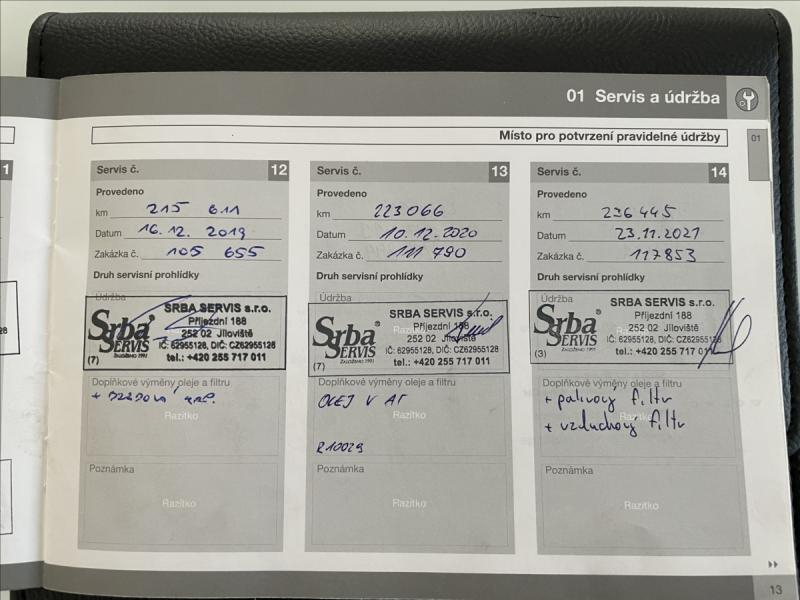 01 Servis a údržba
Místo pro potvrzení pravidelné údržby
01
1
Servis č. 12
Provedeno
km 215 611
Datum 16.12. 2019
Zakázka č. 105 655
Druh servisní prohlídky
Údržba
Srba SERVIS
ZALOŽENO 1991
(7)
SRBA SERVIS s.r.o.
Příjezdní 188
252 02 Jíloviště
IČ: 62955128, DIČ: CZ62955128
tel.: +420 255 717 011
Doplňkové výměny oleje a filtru
+
Razítko
Poznámka
Razítko
Servis č. 13
Provedeno
km 223066
Datum 10.12.2020
Zakázka č. 111 790
Druh servisní prohlídky
Údržba
Srba SERVIS
ZALOŽENO 1991
(7)
SRBA SERVIS s.r.o.
Příjezdní 188
252 02 Jíloviště
IČ: 62955128, DIČ: CZ62955128
tel.: +420 255 717 011
Doplňkové výměny oleje a filtru
OLEJ V AT
Razítko
R10029
Poznámka
Razítko
Servis č. 14
Provedeno
km 226445
Datum 23.11.2021
Zakázka č. 117853
Druh servisní prohlídky
Údržba
Srba SERVIS
ZALOŽENO 1991
(3)
SRBA SERVIS s.r.o.
Příjezdní 188
252 02 Jíloviště
IČ: 62955128, DIČ: CZ62955128
tel.: +420 255 717 011
Doplňkové výměny oleje a filtru
+ palivový filtr
Razítko
+ vzduchový filtr
Poznámka
Razítko
13